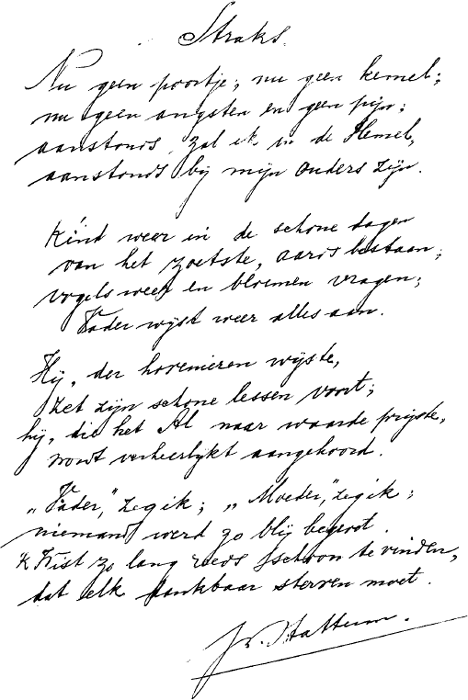 Straks.
Nu geen poortje, nu geen kemel;
nu geen angsten en geen pijn;
aanstonds zal ik in de Hemel,
aanstonds bij mijn ouders zijn.
Kind weer in de schone dagen
van het zoetste, aards bestaan;
vogels weer en bloemen vragen;
Vader wijst weer alles aan.
Hij, der hovenieren wijste,
zet zijn schone lessen voort;
hij, die het Al naar waarde prijste,
wordt verheerlijkt aangehoord.
„Vader,” zeg ik; „Moeder,” zeg ik;
niemand werd zo blij begroet.
'k Wist zo lang reeds schoon te vinden,
dat elk dankbaar sterven moet.
J. v. Hattum.